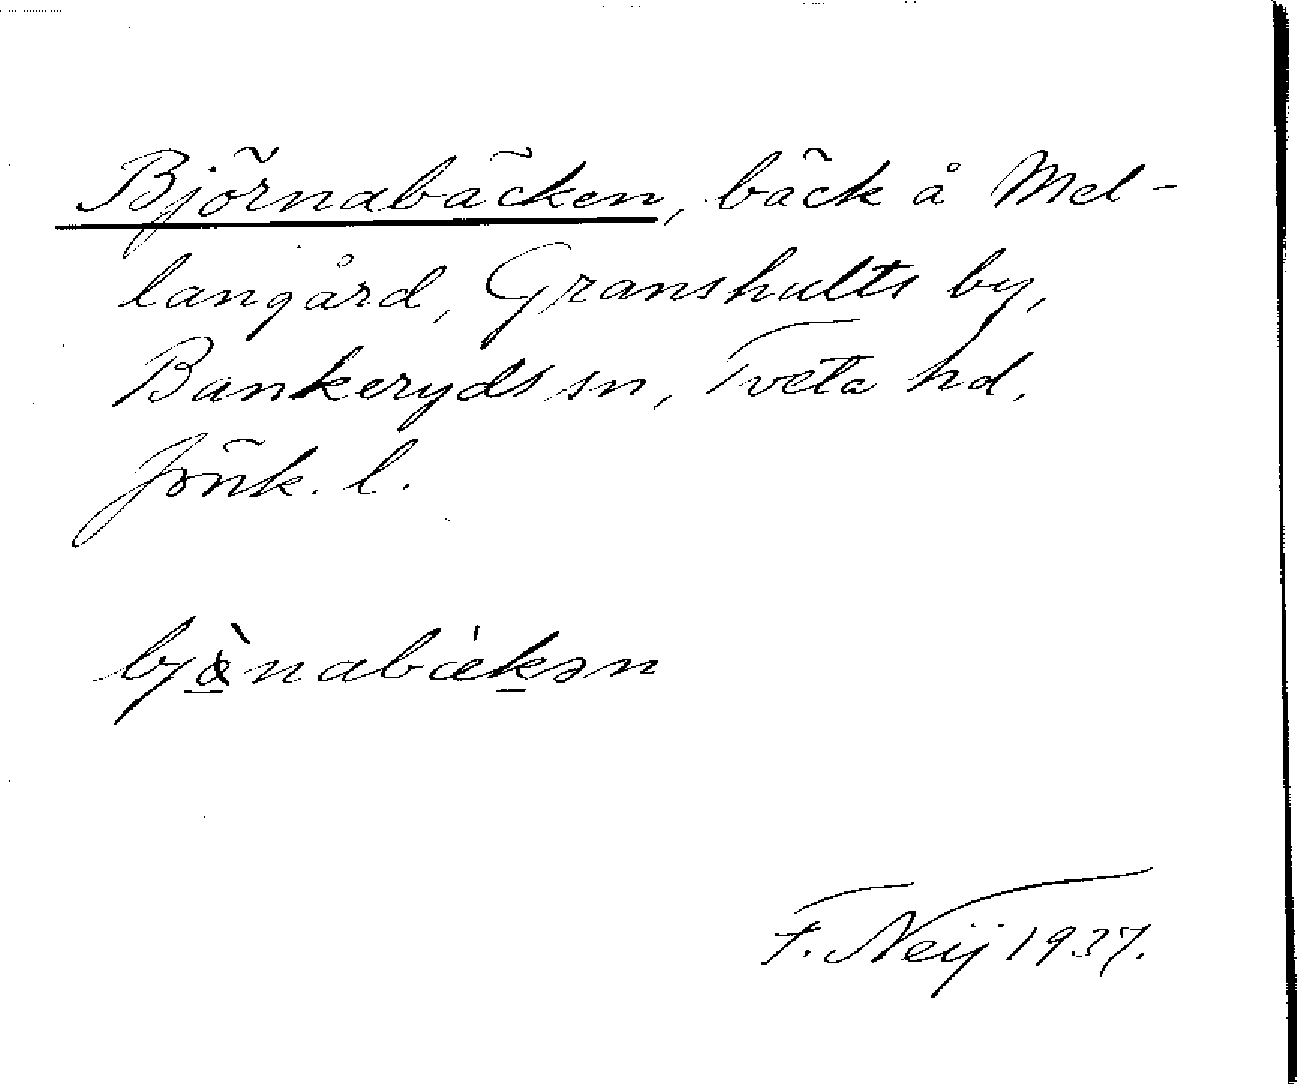 Björnabäcken, bäck å Mel-
langård, Granshults by,
Bankeryds sn, Tveta hd.
Jönk. l.
bjæ̀nabækən
F. Neij 1937.